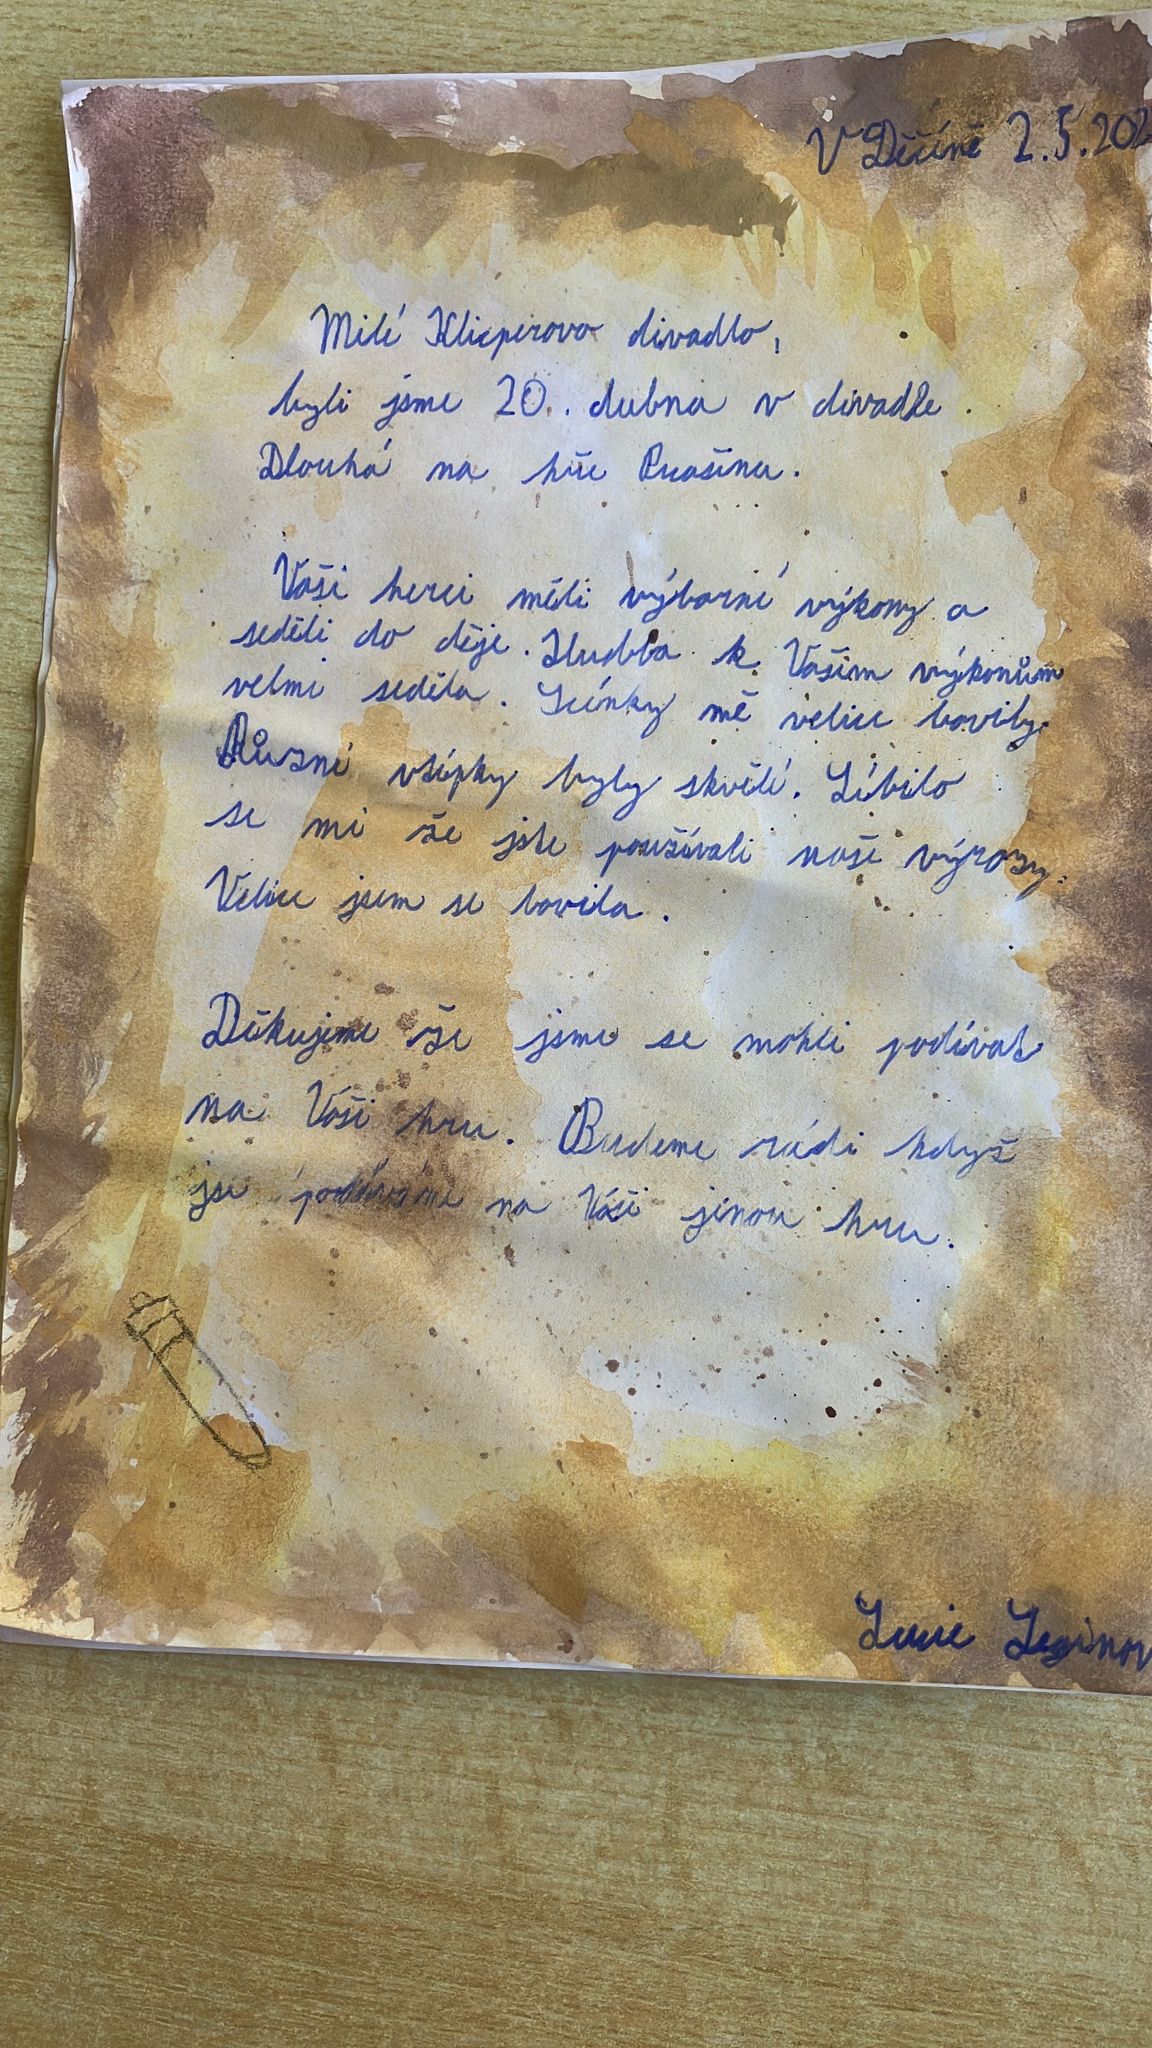 V Děčíně 2.5.202
Milé Klicperovo divadlo,
byli jsme 20. dubna v divadle
Dlouhá na hře Prašina.
Vaši herci měli výborné výkony a
seděli do děje. Hudba k Vašim výkonům
velmi seděla. Scénky mě velice bavily.
Různé vtípky byly skvělé. Líbilo
se mi že jste používali naše výrazy.
Velice jsem se bavila.
Děkujeme že jsme se mohli podívat
na Vaši hru. Budeme rádi když
se podíváme na Vaši jinou hru.
Lucie